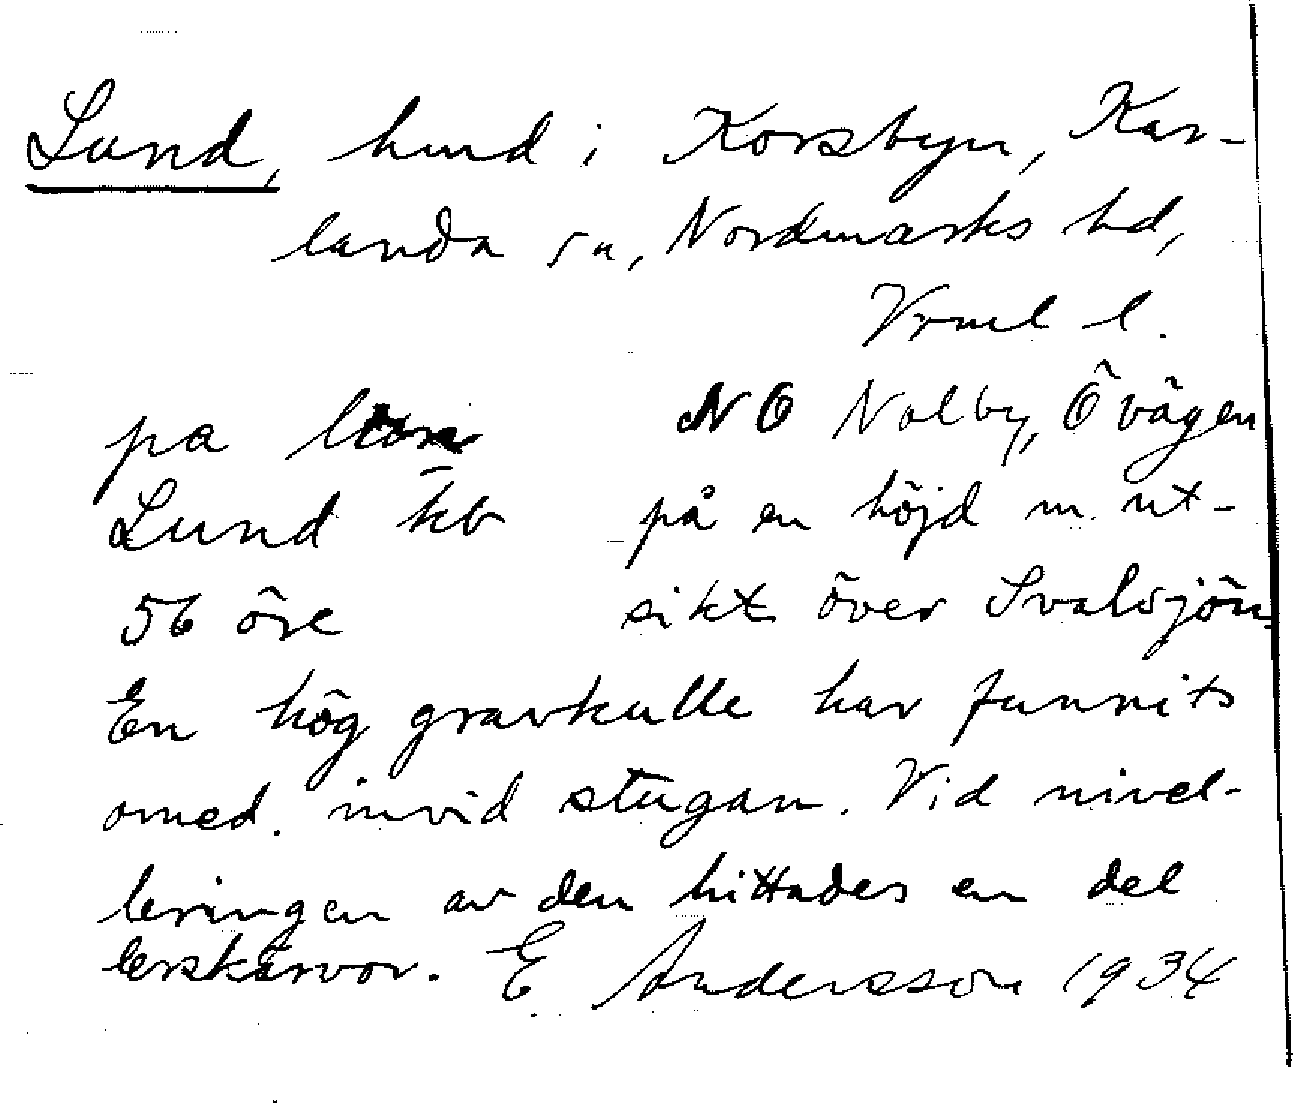 Lund, hmd i Korsbyn, Kar-
landa sn, Nordmarks hd,
Vrml l.
pa NO Nolby, Ö vägen
Lund kb på en höjd m. ut-
56 öre sikt över Svalsjön.
En hög gravkulle har funnits
omed. invid stugan. Vid nivel-
leringen av den hittades en del
lerskärvor. E Andersson 1934